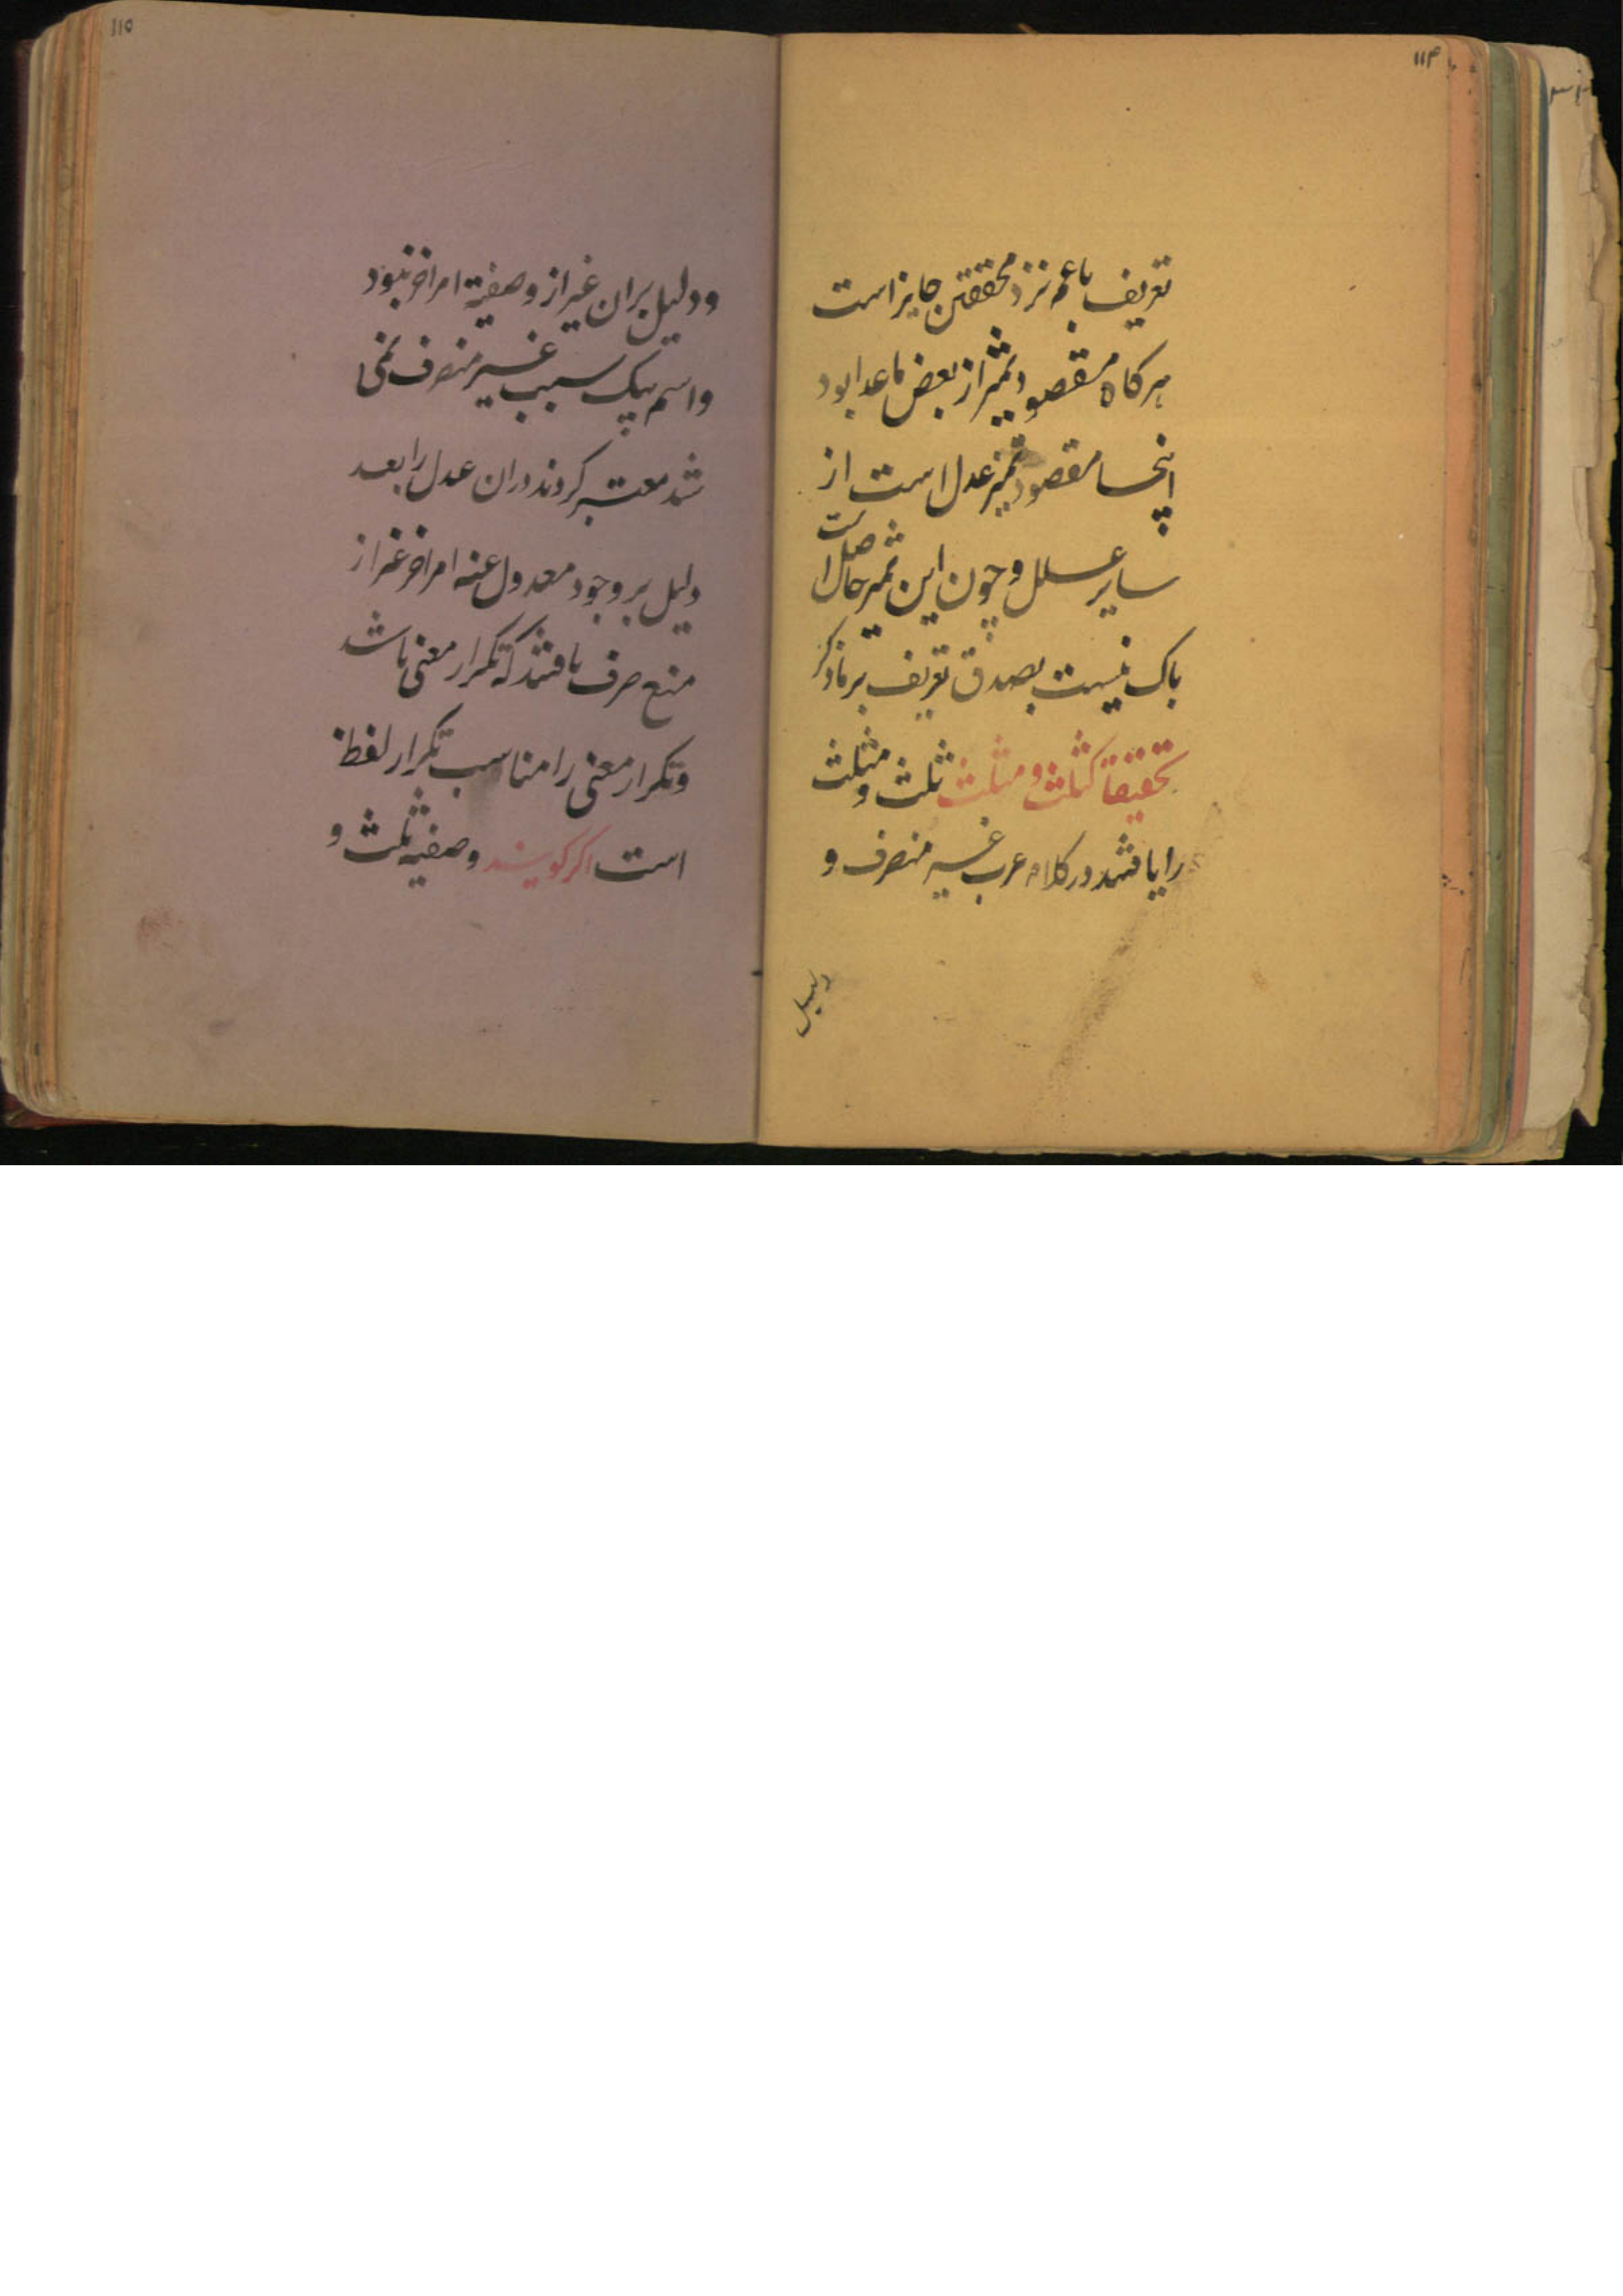 ۱۱۴
تعریف باعم نزد محققین جایز است
هرکاه مقصود تمیز از بعض ماعدا بود
اینجا مقصود تمیز عدل است از
سایر علل و چون این تمیز حاصل است
باک نیست بصدق تعریف بر ماذکر
تحقیقا کثلث و مثلث ثلث و مثلث
را یافتند در کلام عرب غیر منصرف و
دلیل
۱۱۵
و دلیل بران غیر از وصفیة امر اخر نبود
و اسم بیک سبب غیر منصرف نمی
شد معتبر کردند دران عدل را بعد
دلیل بر وجود معدول عنه امر اخر غیر از
منع صرف یافتند که تکرار معنی باشد
و تکرار معنی را مناسب تکرار لفظ
است اکر کویند وصفیه ثلث و